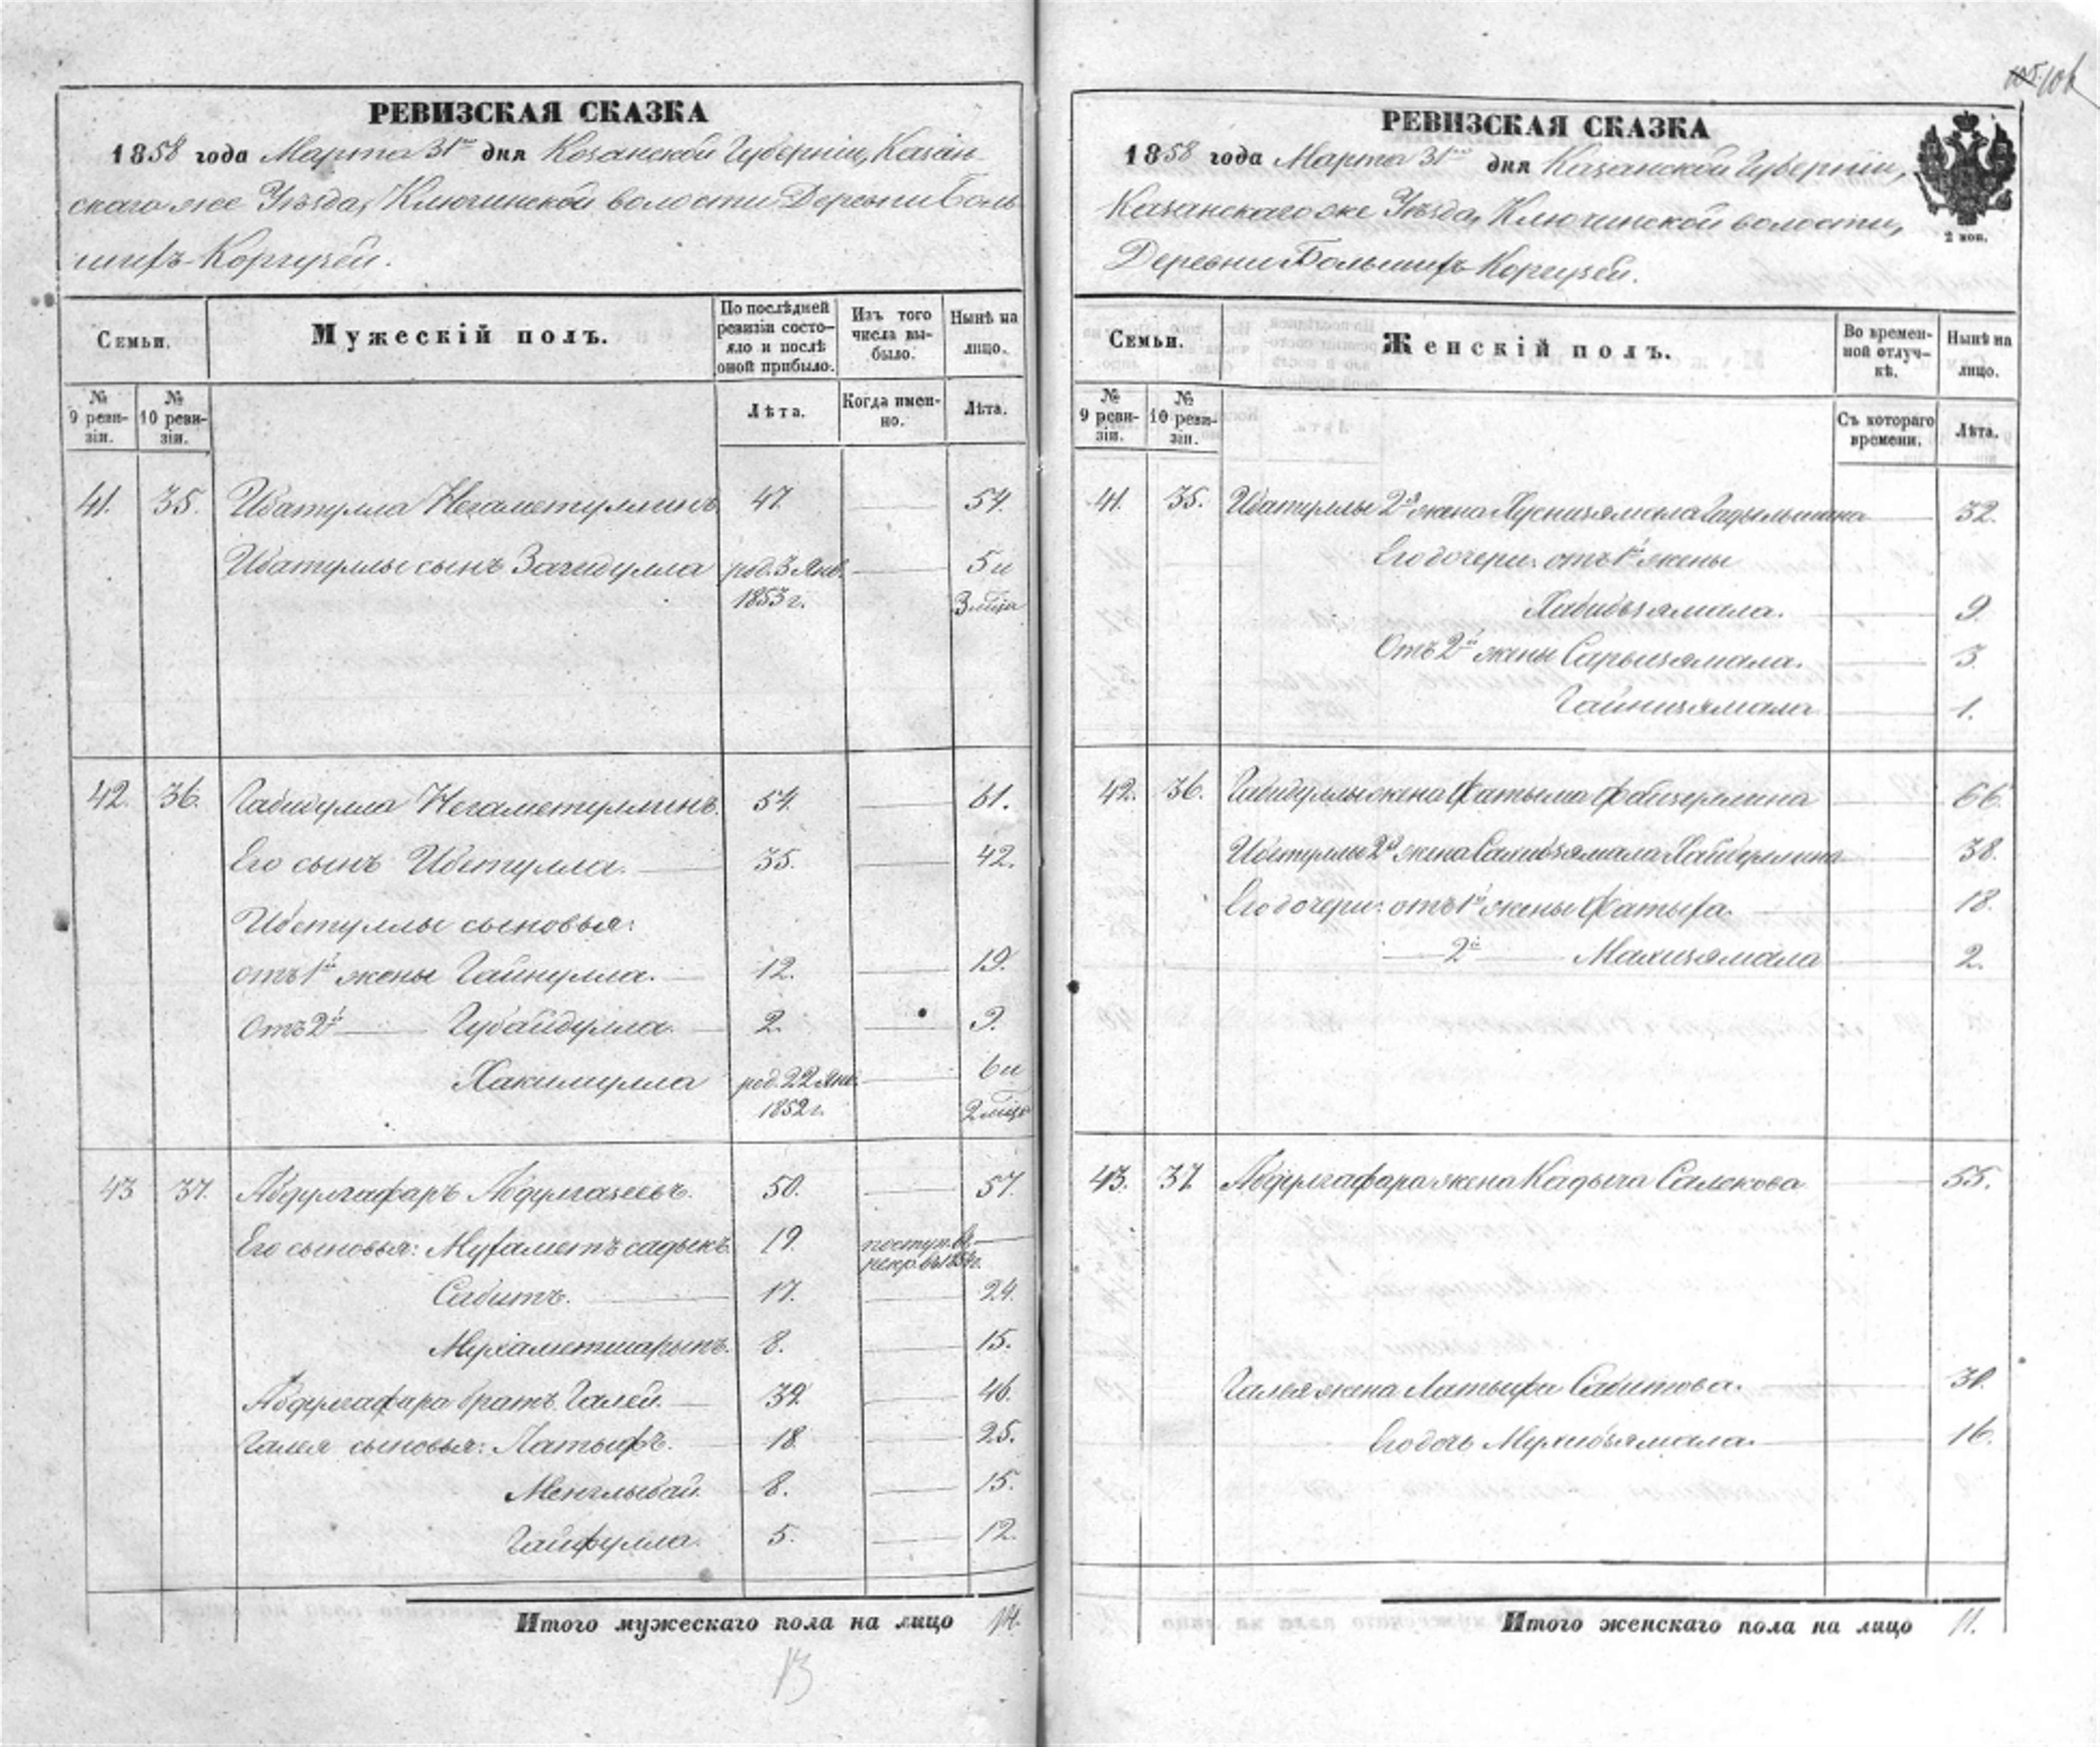 105. 106
РЕВИЗСКАЯ СКАЗКА
1858 года Марта 31го дня Казанской Губерніи, Казан-
скаго же Уѣзда, Ключинской волости Деревни Боль
шихъ Коргузей.
Семьи.
Мужескій полъ.
По послѣдней ревизіи состо-яло и послѣ оной прибыло.
Изъ того числа вы-было.
Нынѣ на лицо.
№ 9 реви-зіи.
№ 10 реви-зіи.
Лѣта.
Когда имен-но.
Лѣта.
41. 35. Ибатулла Негаметуллинъ 47. 54.
Ибатуллы сынъ Загидулла род. 3 Янв. 5 и
1853 г. 3 мѣсца
42. 36. Габидулла Негаметуллинъ. 54. 61.
Его сынъ Ибетулла. 35. 42.
Ибетуллы сыновья:
отъ 1й жены Гайнулла. 12. 19.
Отъ 2й Губайдулла. 2. 9.
Хакимулла род. 22 Янв. 6 и
1852 г. 2 мѣсца
43 37. Абдулгафаръ Абдулгазеевъ. 50. 57.
Его сыновья: Мухаметъ садыкъ. 19. поступ. въ
рекр. въ 1854 г.
Сабитъ. 17. 24.
Мухаметшарыпъ. 8. 15.
Абдулгафара братъ Галей. 39. 46.
Галея сыновья: Латыфъ. 18. 25.
Менглыбай. 8. 15.
Гайфулла. 5. 12.
Итого мужескаго пола на лицо 14.
13
РЕВИЗСКАЯ СКАЗКА
1858 года Марта 31го дня Казанской Губерніи,
Казанскаго же Уѣзда, Ключинской волости,
Деревни Большихъ Коргузей.
2 коп.
Семьи.
Женскій полъ.
Во времен-ной отлуч-кѣ.
Нынѣ на лицо.
№ 9 реви-зіи.
№ 10 реви-зіи.
Съ котораго времени.
Лѣта.
41. 35. Ибатуллы 2я жена Хуснизямала Гадыльшина 32.
Его дочери: отъ 1й жены
Хабибзямала. 9.
Отъ 2й жены Сарвизямала. 3.
Гайнизямала 1.
42. 36. Габидуллы жена Фатыма Файзуллина 66.
Ибетуллы 2я жена Салибзямала Хайбуллина 38.
Его дочери: отъ 1й жены Фатыха. 18.
2й Махизямала 2.
43. 37. Абдулгафара жена Кадыча Салекова 55.
Галея жена Латыфа Сабитова. 39.
Его дочь Мухибзямала. 16.
Итого женскаго пола на лицо 11.